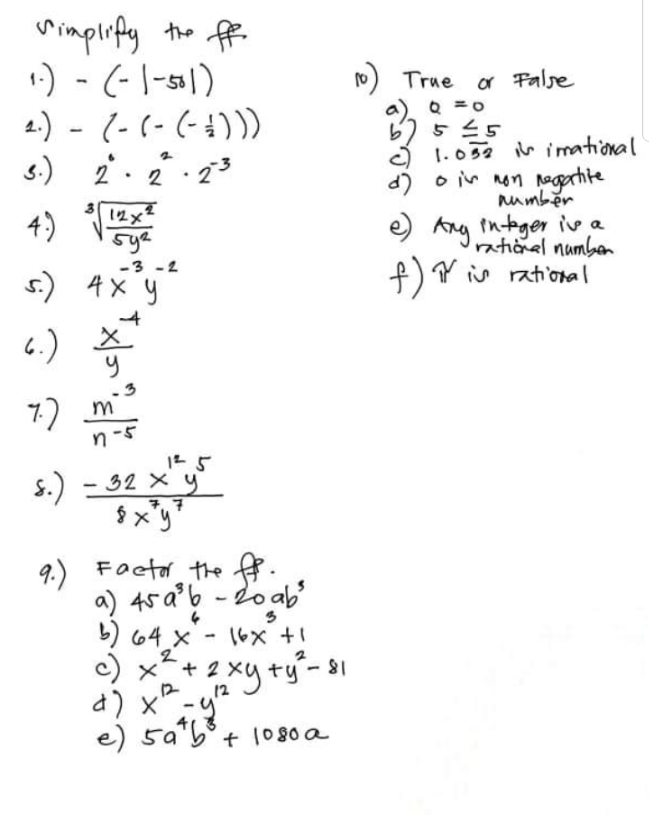 Simplify the ff.
1.) - (-|-50|)
2.) - (-(-(-½)))
3.) 2⁶ · 2² · 2⁻³
4.) ³√(12x²/5y²)
5.) 4x⁻³y⁻²
6.) x⁻⁴/y
7.) m⁻³/n⁻⁵
8.) -32x¹²y⁵/8x⁷y⁷
9.) Factor the ff.
a) 45a³b - 20ab³
b) 64x⁶ - 16x³ + 1
c) x² + 2xy + y² - 81
d) x¹² - y¹²
e) 5a⁴b³ + 1080a
10) True or False
a) Q = 0
b) 5 ≤ 5
c) 1.03̅2̅ is irrational
d) 0 is non negative
number
e) Any integer is a
rational number
f) π is rational